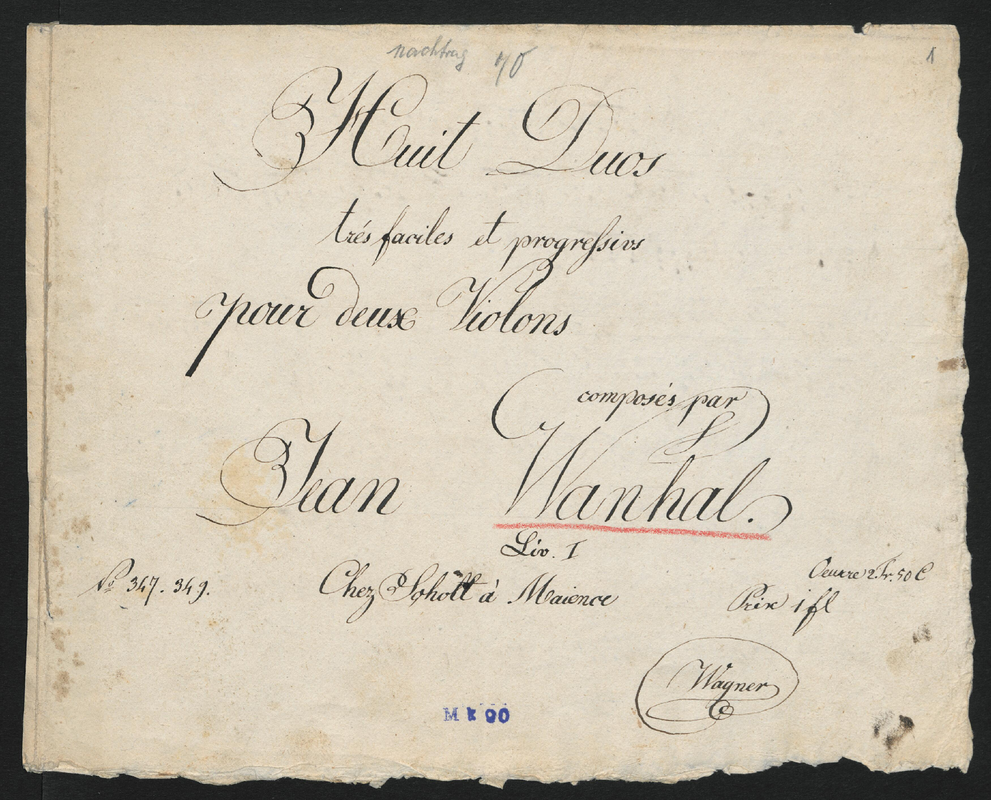 nachtrag 70
1
Huit Duos
trés faciles et progressivs
pour deux Violons
composés par
Jean Wanhal.
Liv. I
No 347. 349. Chez Schott à Maience
Oeuvre 2 Fr. 50 C
Prix 1 fl
Wagner
M 90